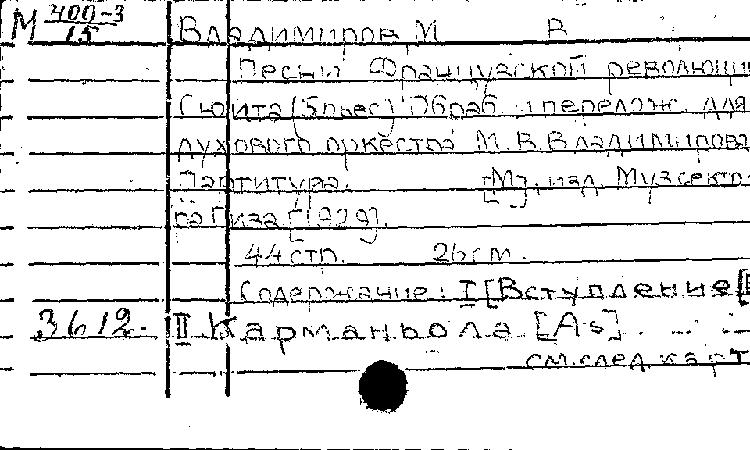 М 400-3/15 Владимиров М В
Песни Французской революции
Сюита (5 пьес) Обраб. и перелож. для
духового оркестра М. В. Владимирова
Партитура. [М], изд. Музсекто-
ра Гиза [1929].
44 стр. 26 см.
Содержание: I [Вступление [
3612. II Карманьола [As]
см. след. карт